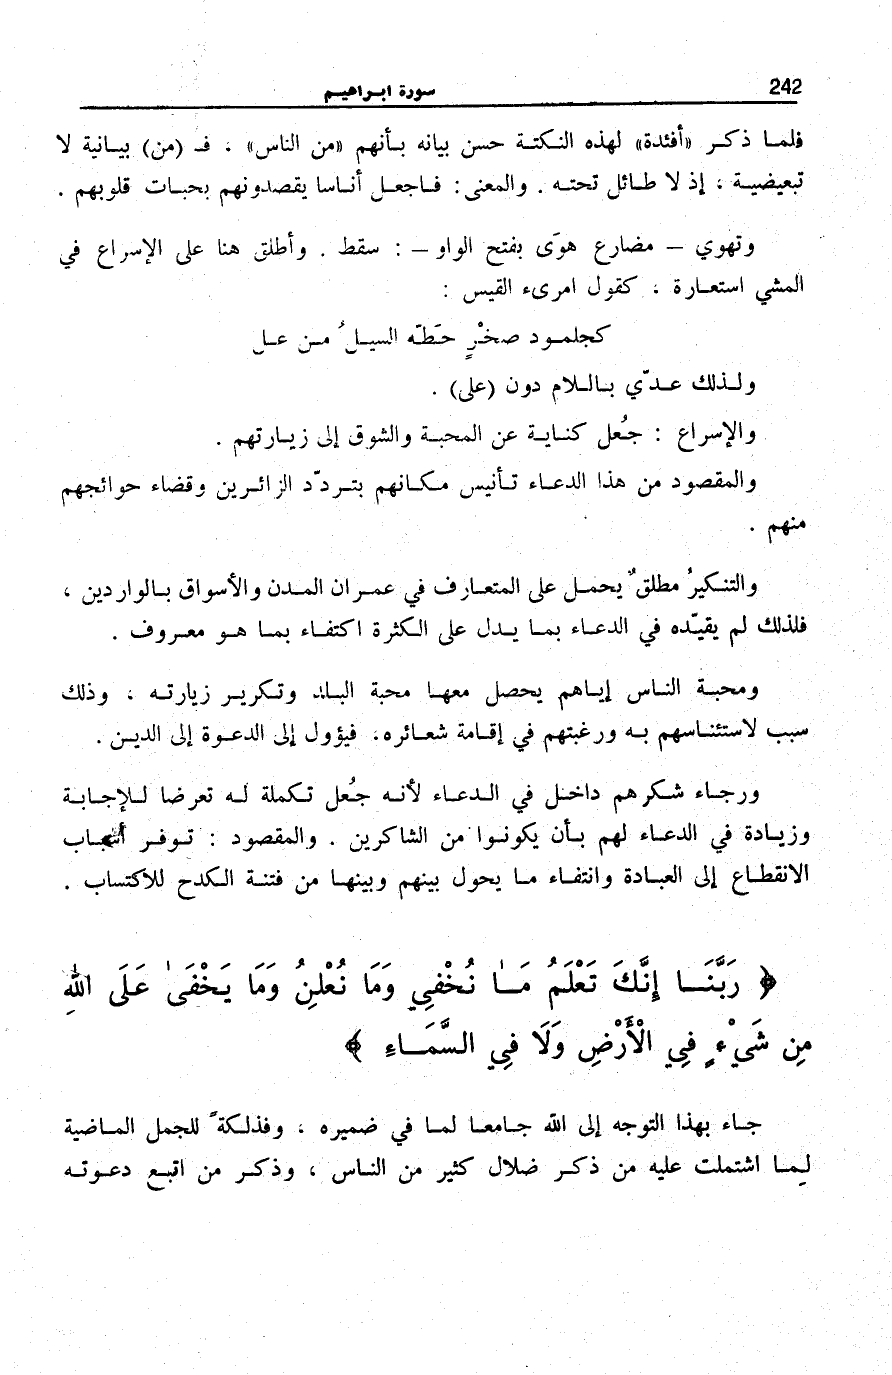 242
سورة ابراهيم
فلما ذكر «أفئدة» لهذه النكتة حسن بيانه بأنهم «من الناس» ، فـ (من) بيانية لا
تبعيضية ، إذ لا طائل تحته . والمعنى : فاجعل أناسا يقصدونهم بحبات قلوبهم .
وتهوي – مضارع هوَى بفتح الواو – : سقط . وأطلق هنا على الإسراع في
المشي استعارة ، كقول امرىء القيس :
كجلمود صخْرٍ حَطّه السيلُ من عل
ولذلك عدّي باللام دون (على) .
والإسراع : جُعل كناية عن المحبة والشوق إلى زيارتهم .
والمقصود من هذا الدعاء تأنيس مكانهم بتردّد الزائرين وقضاء حوائجهم
منهم .
والتنكيرُ مطلقٌ يحمل على المتعارف في عمران المدن والأسواق بالواردين ،
فلذلك لم يقيّده في الدعاء بما يدل على الكثرة اكتفاء بما هو معروف .
ومحبة الناس إياهم يحصل معها محبة البلد وتكرير زيارته ، وذلك
سبب لاستئناسهم به ورغبتهم في إقامة شعائره، فيؤول إلى الدعوة إلى الدين .
ورجاء شكرهم داخل في الدعاء لأنه جُعل تكملة له تعرضا للإجابة
وزيادة في الدعاء لهم بأن يكونوا من الشاكرين . والمقصود : توفر أسباب
الانقطاع إلى العبادة وانتفاء ما يحول بينهم وبينها من فتنة الكدح للاكتساب .
﴿ رَبَّنَا إِنَّكَ تَعْلَمُ مَا نُخْفِي وَمَا نُعْلِنُ وَمَا يَخْفَىٰ عَلَى اللهِ
مِن شَيْءٍ فِي الْأَرْضِ وَلَا فِي السَّمَاءِ ﴾
جاء بهذا التوجه إلى الله جامعا لما في ضميره ، وفذلكةً للجمل الماضية
لِما اشتملت عليه من ذكر ضلال كثير من الناس ، وذكر من اتبع دعوته